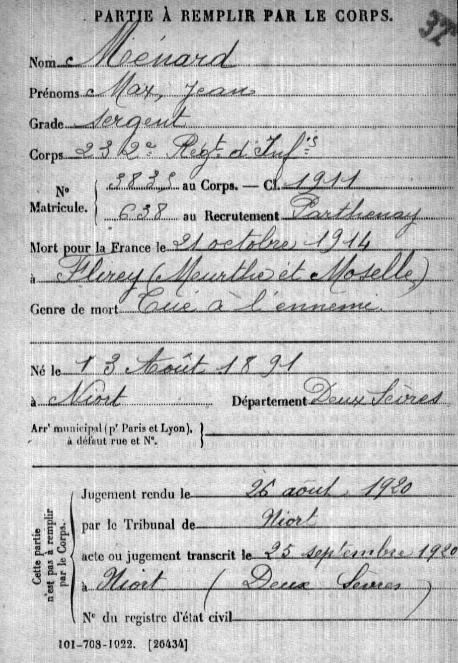 PARTIE À REMPLIR PAR LE CORPS.
37
Nom Ménard
Prénoms Max, Jean
Grade Sergent
Corps 232e Regt. d'Infie
N° Matricule. { 3835 au Corps. — Cl. 1911
638 au Recrutement Parthenay
Mort pour la France le 21 octobre 1914
à Flirey (Meurthe et Moselle)
Genre de mort Tué à l'ennemi
Né le 13 Août 1891
à Niort Département Deux Sèvres
Arrt municipal (pr Paris et Lyon), à défaut rue et N°. }
Cette partie n'est pas à remplir par le Corps.
Jugement rendu le 26 aout 1920
par le Tribunal de Niort
acte ou jugement transcrit le 25 septembre 1920
à Niort (Deux Sevres)
N° du registre d'état civil
101-708-1922. [26434]